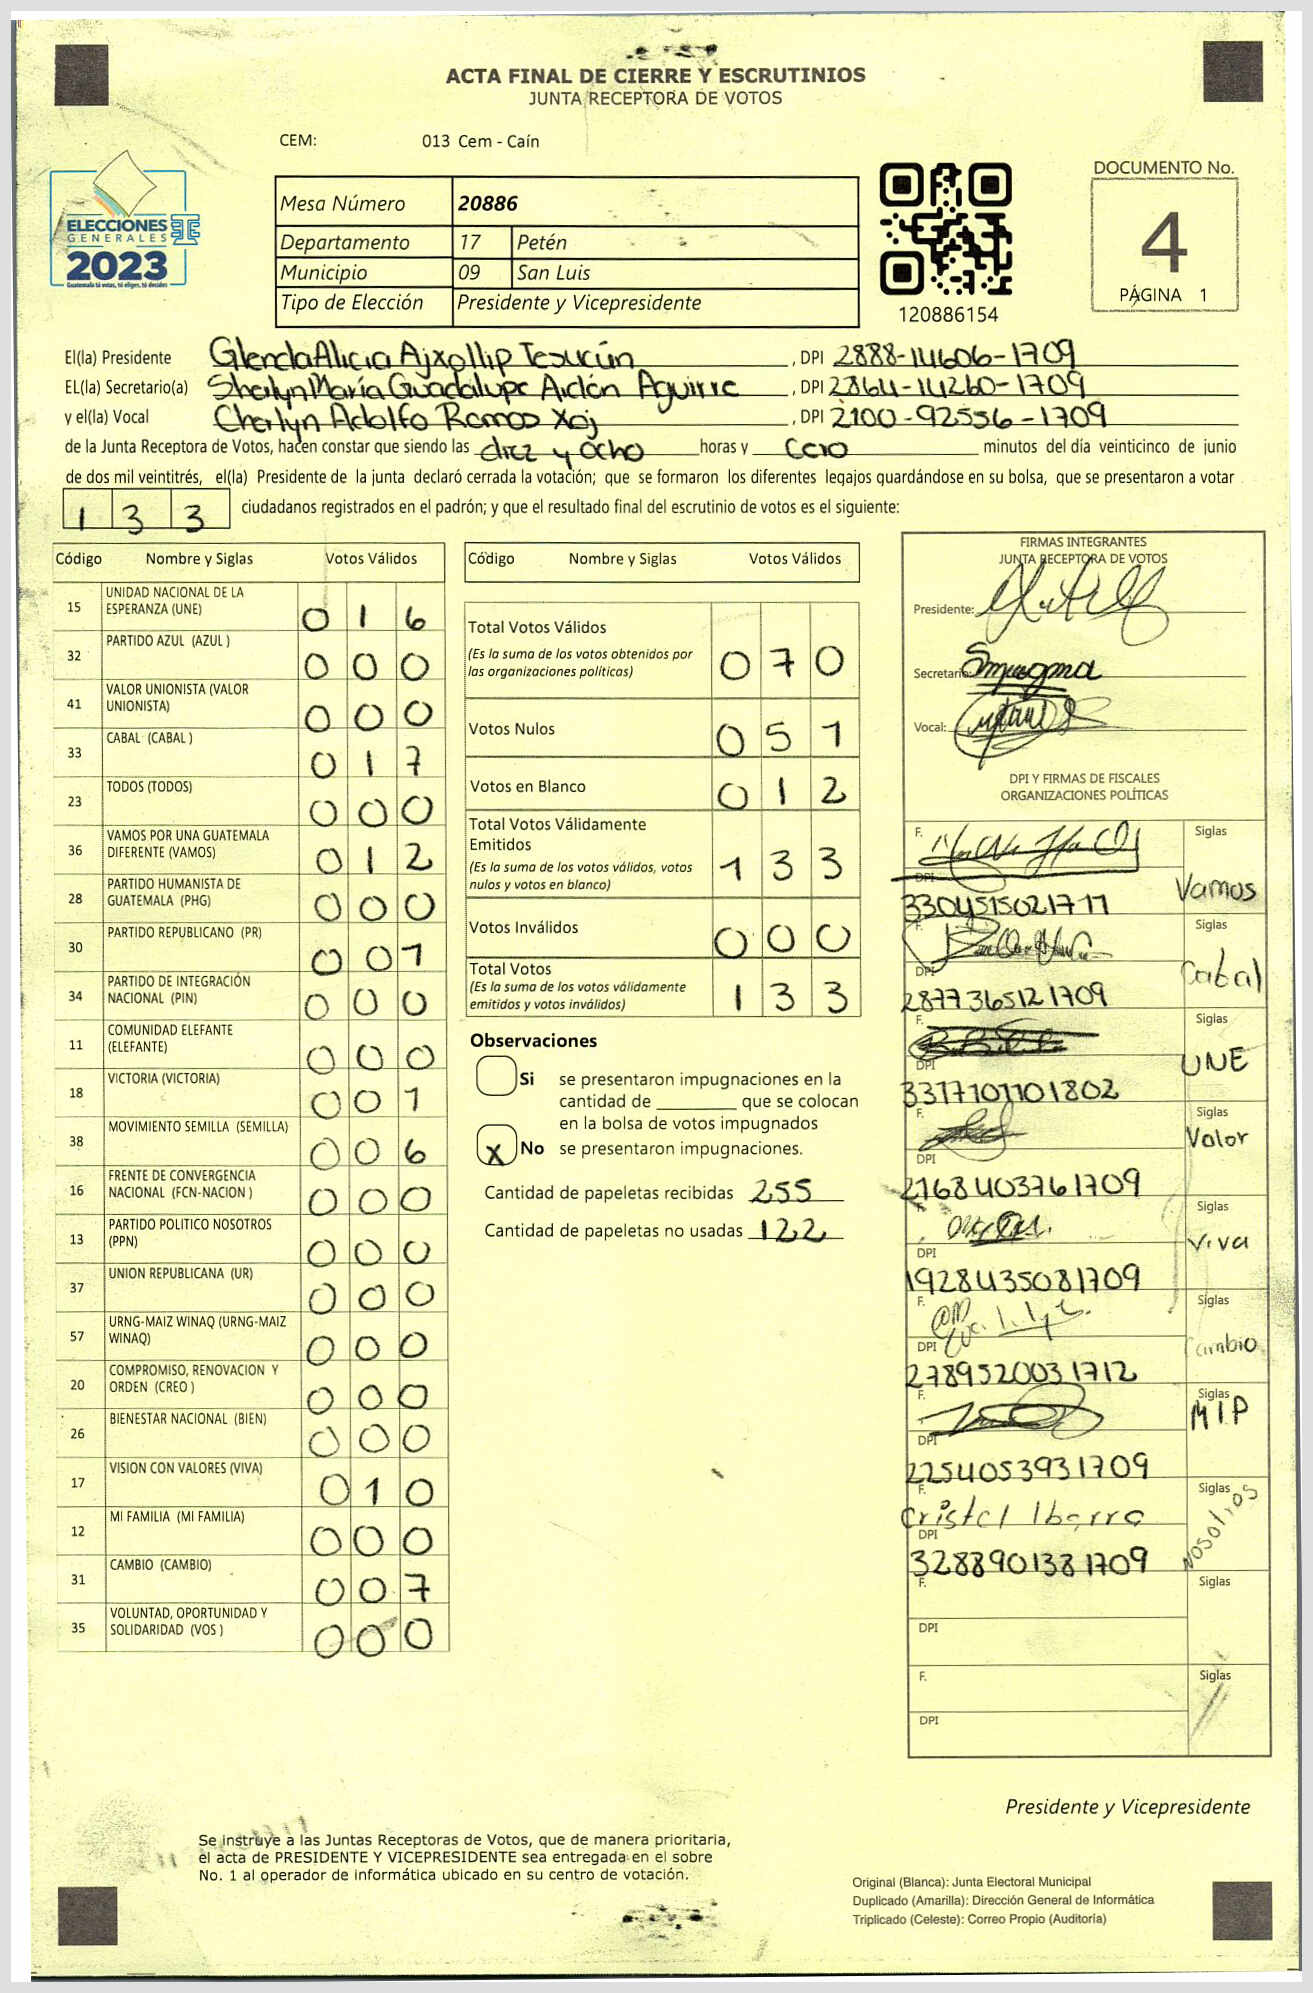 ACTA FINAL DE CIERRE Y ESCRUTINIOS
JUNTA RECEPTORA DE VOTOS
CEM: 013 Cem - Caín
ELECCIONES
GENERALES
2023
Guatemala tú votas, tú eliges, tú decides
Mesa Número 20886
Departamento 17 Petén
Municipio 09 San Luis
Tipo de Elección Presidente y Vicepresidente
120886154
DOCUMENTO No.
4
PÁGINA 1
El(la) Presidente Glenda Alicia Ajxollip Tesucún , DPI 2888-14606-1709
EL(la) Secretario(a) Sheilyn María Guadalupe Aldón Aguirre , DPI 2864-14260-1709
y el(la) Vocal Cherlyn Adolfo Ramos Xoj , DPI 2100-92556-1709
de la Junta Receptora de Votos, hacen constar que siendo las diez y ocho horas y cero minutos del día veinticinco de junio
de dos mil veintitrés, el(la) Presidente de la junta declaró cerrada la votación; que se formaron los diferentes legajos guardándose en su bolsa, que se presentaron a votar
133 ciudadanos registrados en el padrón; y que el resultado final del escrutinio de votos es el siguiente:
Código Nombre y Siglas Votos Válidos
15 UNIDAD NACIONAL DE LA ESPERANZA (UNE) 016
32 PARTIDO AZUL (AZUL ) 000
41 VALOR UNIONISTA (VALOR UNIONISTA) 000
33 CABAL (CABAL ) 017
23 TODOS (TODOS) 000
36 VAMOS POR UNA GUATEMALA DIFERENTE (VAMOS) 012
28 PARTIDO HUMANISTA DE GUATEMALA (PHG) 000
30 PARTIDO REPUBLICANO (PR) 001
34 PARTIDO DE INTEGRACIÓN NACIONAL (PIN) 000
11 COMUNIDAD ELEFANTE (ELEFANTE) 000
18 VICTORIA (VICTORIA) 001
38 MOVIMIENTO SEMILLA (SEMILLA) 006
16 FRENTE DE CONVERGENCIA NACIONAL (FCN-NACION ) 000
13 PARTIDO POLITICO NOSOTROS (PPN) 000
37 UNION REPUBLICANA (UR) 000
57 URNG-MAIZ WINAQ (URNG-MAIZ WINAQ) 000
20 COMPROMISO, RENOVACION Y ORDEN (CREO ) 000
26 BIENESTAR NACIONAL (BIEN) 000
17 VISION CON VALORES (VIVA) 010
12 MI FAMILIA (MI FAMILIA) 000
31 CAMBIO (CAMBIO) 007
35 VOLUNTAD, OPORTUNIDAD Y SOLIDARIDAD (VOS ) 000
Código Nombre y Siglas Votos Válidos
Total Votos Válidos 070
(Es la suma de los votos obtenidos por
las organizaciones políticas)
Votos Nulos 051
Votos en Blanco 012
Total Votos Válidamente
Emitidos 133
(Es la suma de los votos válidos, votos
nulos y votos en blanco)
Votos Inválidos 000
Total Votos 133
(Es la suma de los votos válidamente
emitidos y votos inválidos)
Observaciones
Si se presentaron impugnaciones en la
cantidad de ________ que se colocan
en la bolsa de votos impugnados
X No se presentaron impugnaciones.
Cantidad de papeletas recibidas 255
Cantidad de papeletas no usadas 122
FIRMAS INTEGRANTES
JUNTA RECEPTORA DE VOTOS
Presidente:
Secretario:
Vocal:
DPI Y FIRMAS DE FISCALES
ORGANIZACIONES POLÍTICAS
F. Siglas
DPI 3304515021711 Vamos
F. Siglas
DPI 2877365121709 Cabal
F. Siglas
DPI 3317101101802 UNE
F. Siglas
DPI 2168403761709 Valor
F. Siglas
DPI 1928435081709 Viva
F. Siglas
DPI 2789520031712 Cambio
F. Siglas
DPI 2254053931709 MLP
F. Cristel Ibarra Siglas
DPI 3288901381709 Nosotros
F. Siglas
DPI
F. Siglas
DPI
Presidente y Vicepresidente
Se instruye a las Juntas Receptoras de Votos, que de manera prioritaria,
el acta de PRESIDENTE Y VICEPRESIDENTE sea entregada en el sobre
No. 1 al operador de informática ubicado en su centro de votación.
Original (Blanca): Junta Electoral Municipal
Duplicado (Amarilla): Dirección General de Informática
Triplicado (Celeste): Correo Propio (Auditoría)